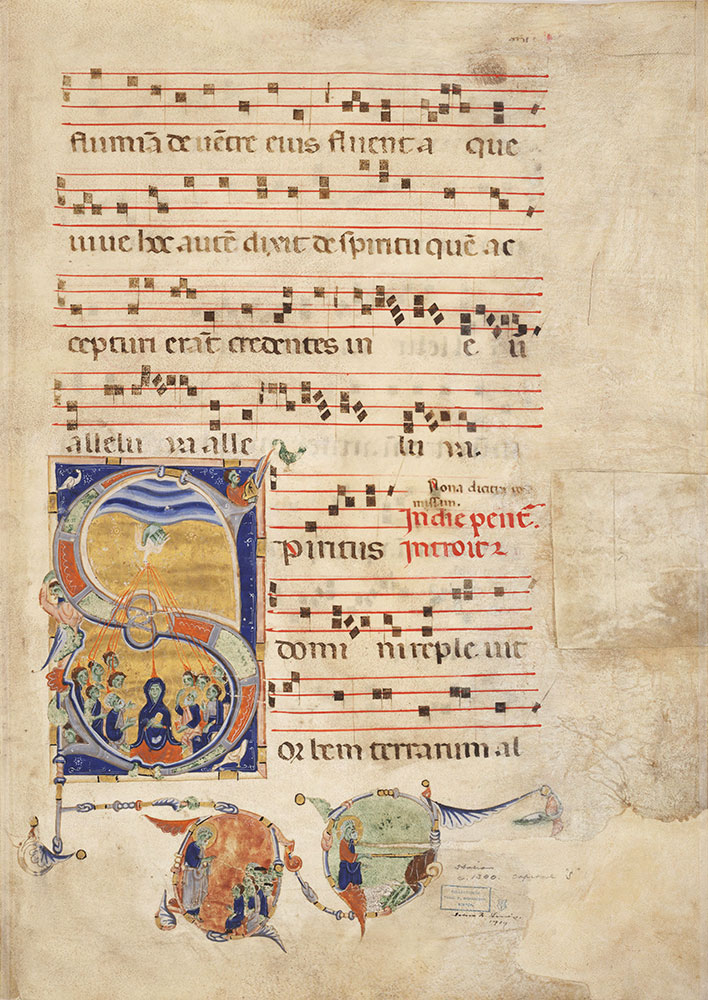 flumīa de uētre eius fluent a que
uiue hoc autē dixit de spiritu quē ac
cepturi erāt credentes in e ū
allelu ya alle lu ya.
Nona dicitur
missam.
In die pent̄.
Spiritus Introit
domi ni reple uit
or bem terrarum al
c. 1300. capital "S"